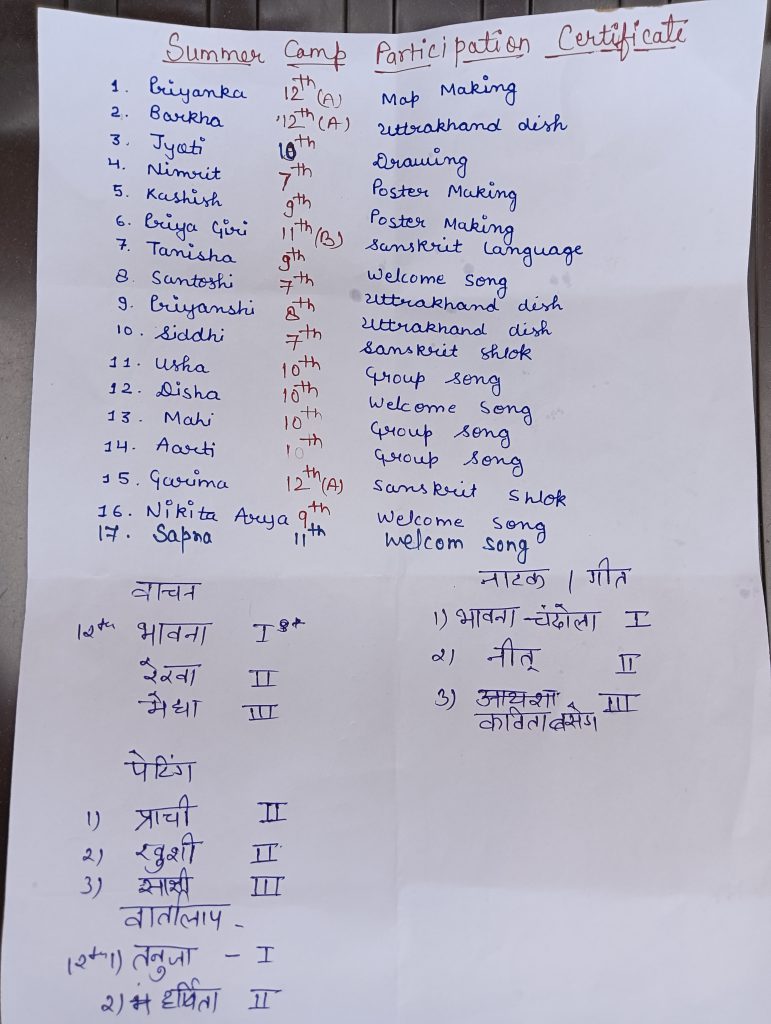 Summer Camp Participation Certificate
1. Priyanka 12th (A) Map Making
2. Barkha 12th (A) Uttrakhand dish
3. Jyoti 10th Drawing
4. Nimrit 7th Poster Making
5. Kashish 9th Poster Making
6. Priya Giri 11th (B) Sanskrit Language
7. Tanisha 9th Welcome Song
8. Santoshi 7th Uttrakhand dish
9. Priyanshi 8th Uttrakhand dish
10. Siddhi 7th Sanskrit Shlok
11. Usha 10th Group Song
12. Disha 10th Welcome Song
13. Mahi 10th Group Song
14. Aarti 10th Group Song
15. Garima 12th (A) Sanskrit Shlok
16. Nikita Arya 9th Welcome Song
17. Sapna 11th Welcom Song
वाचन
12th भावना I st
रेखा II
मेधा III
नाटक / गीत
1) भावना चंदोला I
2) नीतू II
3) आयशा III
कविता
पेटिंग
1) प्राची II
2) खुशी II
3) साक्षी III
वार्तालाप -
12th 1) तनुजा - I
2) हर्षिता II